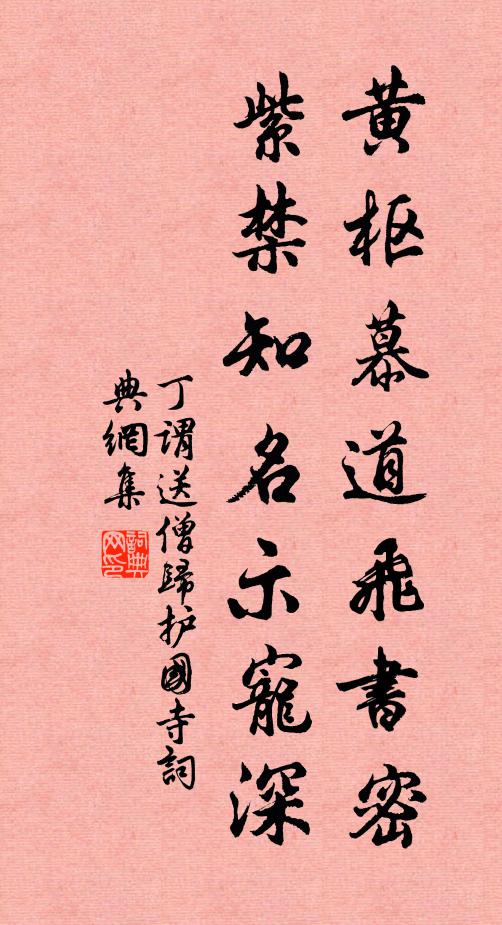 黄枢慕道飛書密
紫禁知名示寵深
丁謂送僧歸护國寺詞
典網集
詞典网印